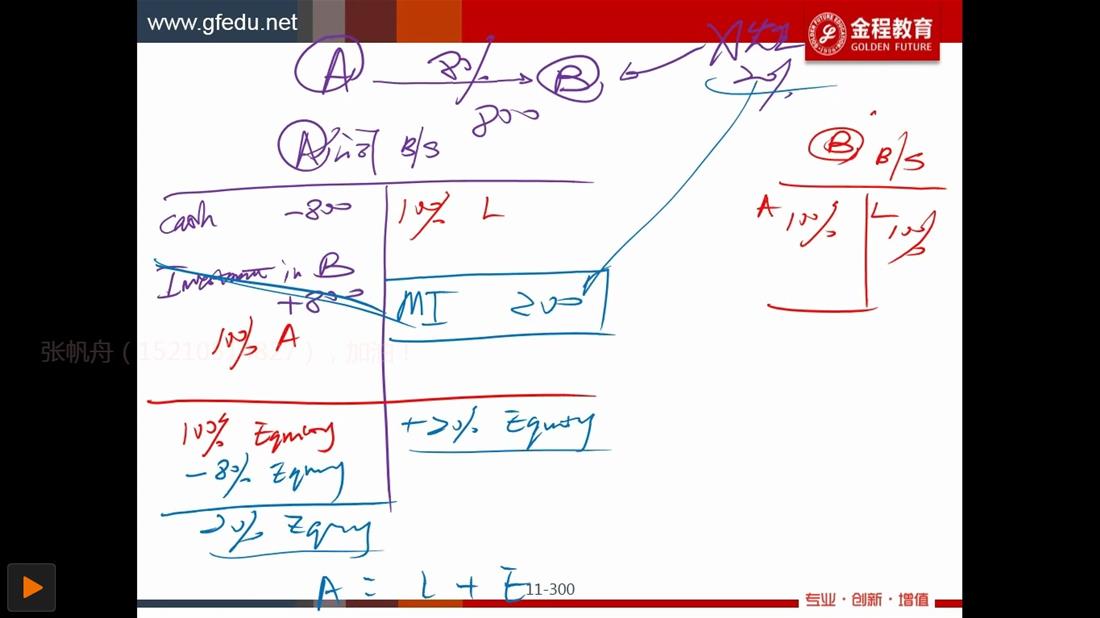 www.gfedu.net
金程教育
GOLDEN FUTURE
A 80% B
20%
800
A公司 B/S
B B/S
cash -800
100% L
A 100%
L 100%
Investment in B
+800
MI 200
100% A
100% Equity
+20% Equity
-80% Equity
20% Equity
A = L + E
11-300
专业·创新·增值